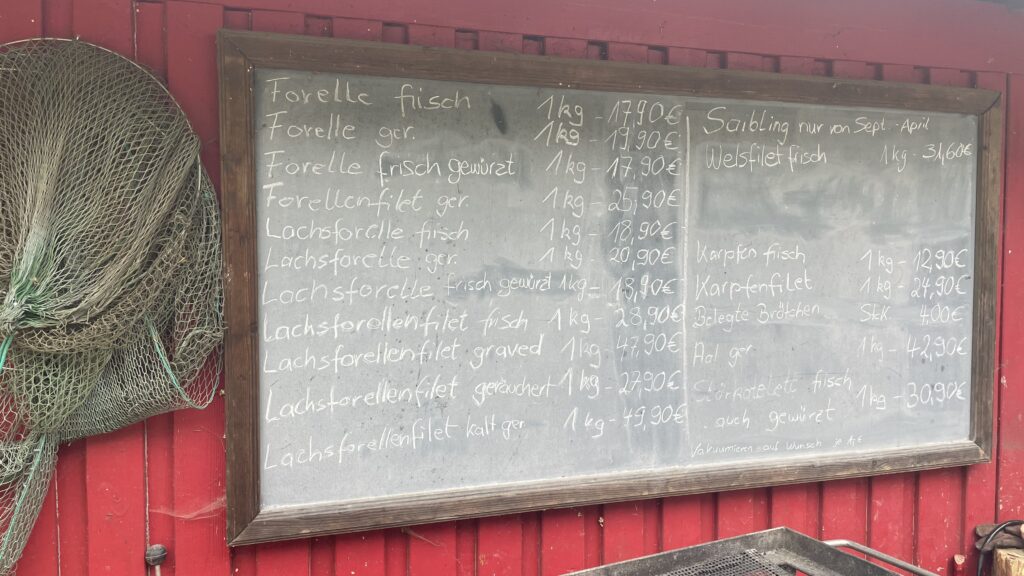 Forelle frisch 1kg - 17,90€
Forelle ger. 1kg - 19,90€
Forelle frisch gewürzt 1kg - 17,90€
Forellenfilet ger. 1kg - 25,90€
Lachsforelle frisch 1kg - 18,90€
Lachsforelle ger. 1kg - 20,90€
Lachsforelle frisch gewürzt 1kg - 18,90€
Lachsforellenfilet frisch 1kg - 28,90€
Lachsforellenfilet graved 1kg 47,90€
Lachsforellenfilet geräuchert 1kg - 27,90€
Lachsforellenfilet kalt ger 1kg - 49,90€
Saibling nur von Sept. - April
Welsfilet frisch 1kg - 31,60€
Karpfen frisch 1kg - 12,90€
Karpfenfilet 1kg - 24,90€
Belegte Brötchen Stck. 4,00€
Aal ger 1kg - 42,90€
frisch
auch gewürzt 1kg - 30,90€
Vakuumieren auf Wunsch je 1€